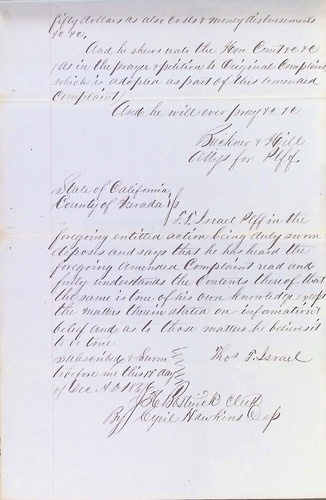 fifty dollars as also costs & money disbursements
&c &c,
And he shews unto the Hon Court &c &c
(As in the prayer & petition to Original Complaint
which is adopted as part of this amended
Complaint)
And he will ever pray &c &c
Buckner & Hill
Attys for Plff.
State of California
County of Nevada } ss
T. T. Israel Plff in the
foregoing entitled action being duly sworn
deposes and says that he has heard the
foregoing Amended Complaint read and
fully understands the Contents thereof that
the same is true of his own knowledge except
the matters therein stated on information &
belief and as to those matters he believes it
to be true
Subscribed & Sworn
to before me this 17 day
of Dec A.D.
Thos T. Israel
Clerk
By Cyril Hawkins Dep